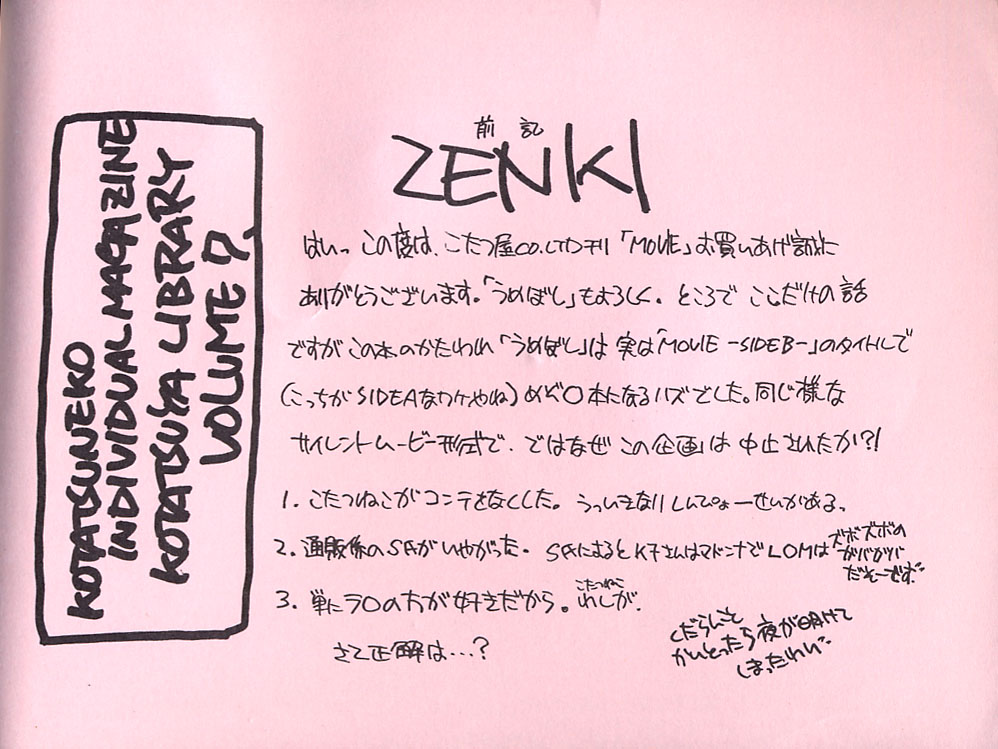 KOTATSUNEKO
INDIVIDUAL MAGAZINE
KOTATSUYA LIBRARY
VOLUME 7.
前記
ZENKI
はいっ この度は、こたつ屋CO.LTD刊「MOVIE」お買いあげ誠に
ありがとうございます。「うめぼし」もよろしく。ところで ここだけの話
ですが この本のかたわれ「うめぼし」は 実は「MOVIE -SIDEB-」のタイトルで
(こっちが SIDEAなワケやね) めぞ〇本になるハズでした。同じ様な
サイレントムービー形式で. ではなぜ この企画は 中止されたか?!
1. こたつねこがコンテをなくした。 うっいきなりしんぴょーせいがある。
2. 通販係の S氏がいやがった. S氏によると K子さんはマドンナで LOMは ズボズボの
ガバガバ
だそーです
3. 単に ラ〇の方が好きだから。 わしが.
こたつねこ
さて正解は…?
くだらんこと
かいとったら夜が明けて
しまったわい